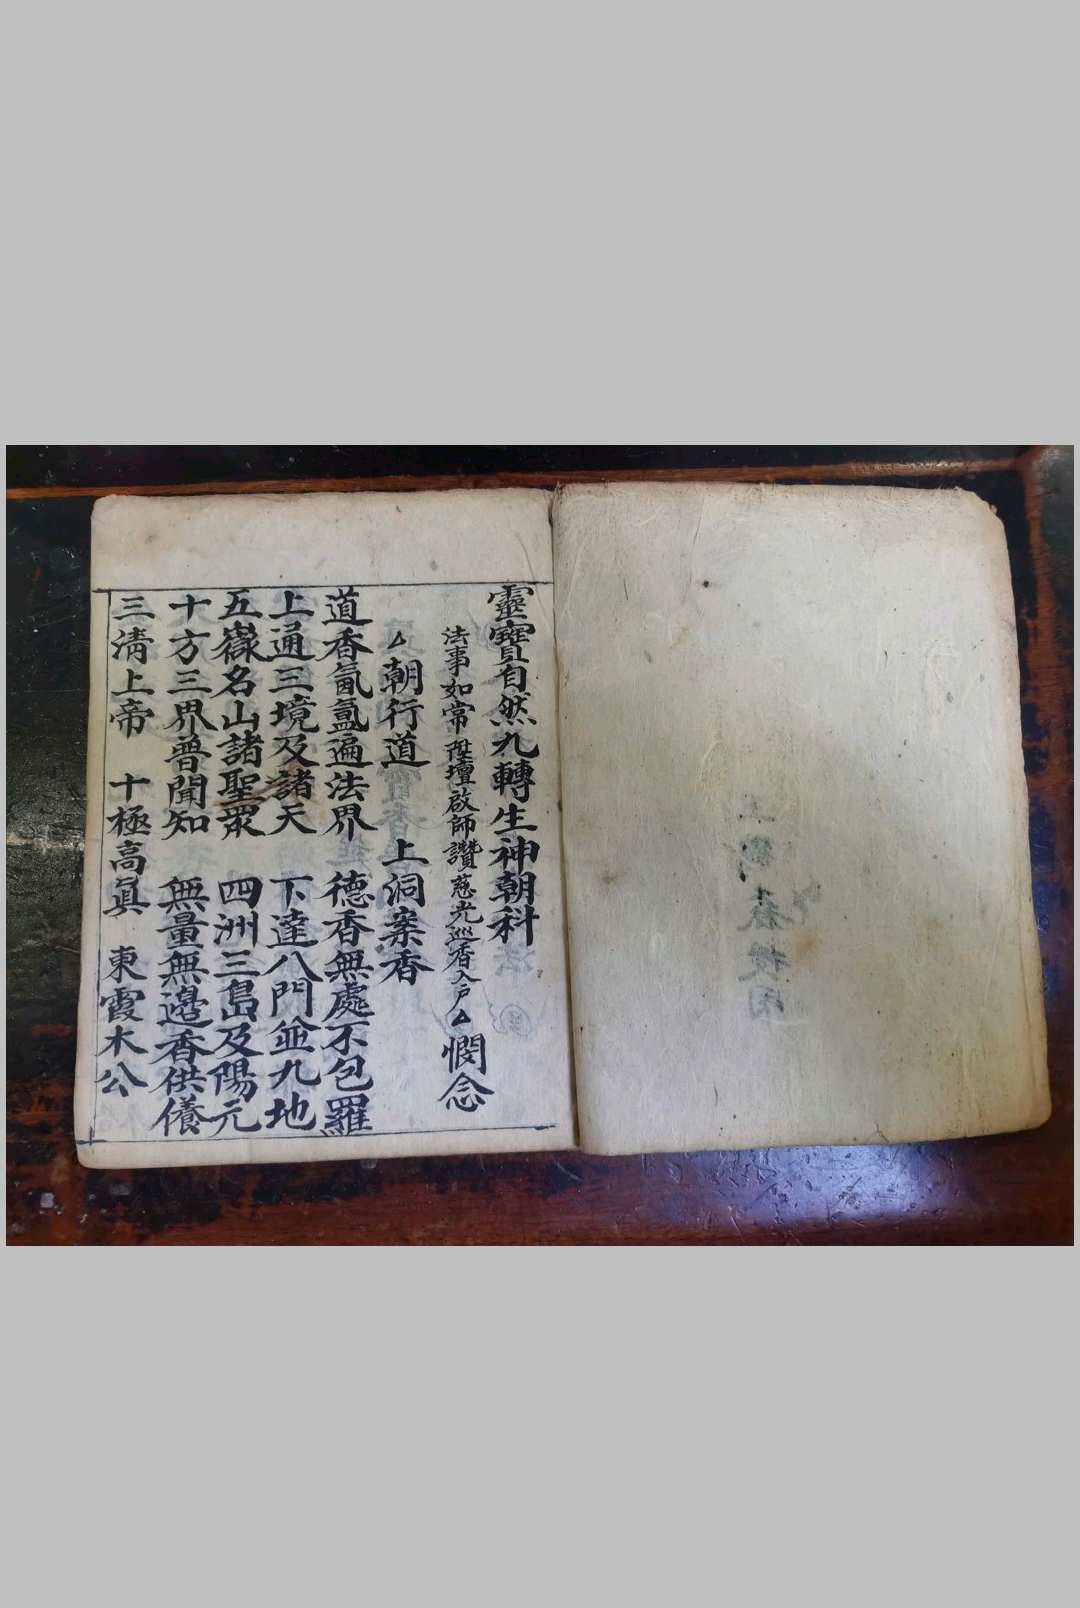 靈寶自然九轉生神朝科
法事如常陞壇啟師讚慈光巡香入戶△憫念
△朝行道 上洞案香
道香氤氳遍法界 德香無處不包羅
上通三境及諸天 下達八門並九地
五嶽名山諸聖眾 四洲三島及陽元
十方三界普聞知 無量無邊香供養
三清上帝 十極高眞 東霞木公